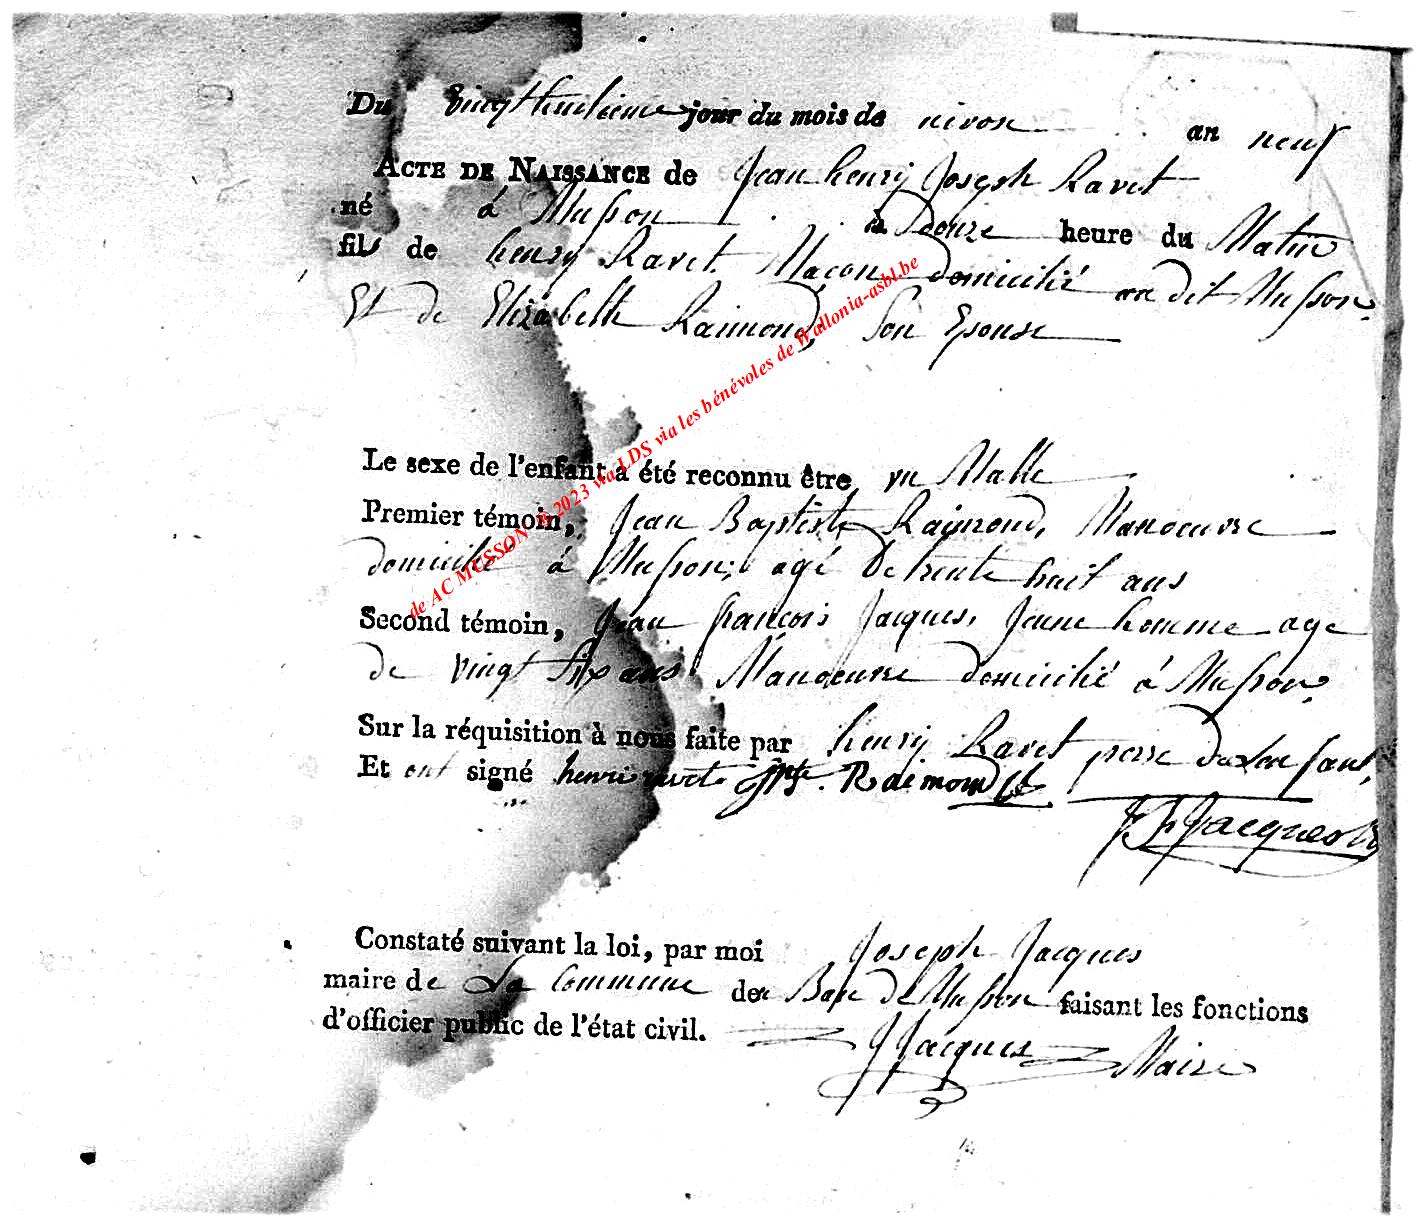 Du Vingthuitieme jour du mois de nivose an neuf
ACTE DE NAISSANCE de Jean henry Joseph Ravet
né à Musson à Douze heure du Matin
fils de henry Ravet Maçon domicilié au dit Musson
Et de Elizabeth Raimond, Son Epouse
Le sexe de l'enfant a été reconnu être un Malle
Premier témoin, Jean Baptiste Raimond, Manoeuvre
domicilié à Musson, agé De trente huit ans
Second témoin, Jean françois Jacques, Jeune homme age
de Vingt Six ans Manoeuvre domicilié à Musson
Sur la réquisition à nous faite par henry Ravet perre de
Et ont signé henri ravet Raimond
J F Jacques
Constaté suivant la loi, par moi Joseph Jacques
maire de La Commune de Musson faisant les fonctions
d'officier public de l'état civil. J Jacques Maire
de AC MUSSON © 2023 via LDS via les bénévoles de Wallonia-asbl.be